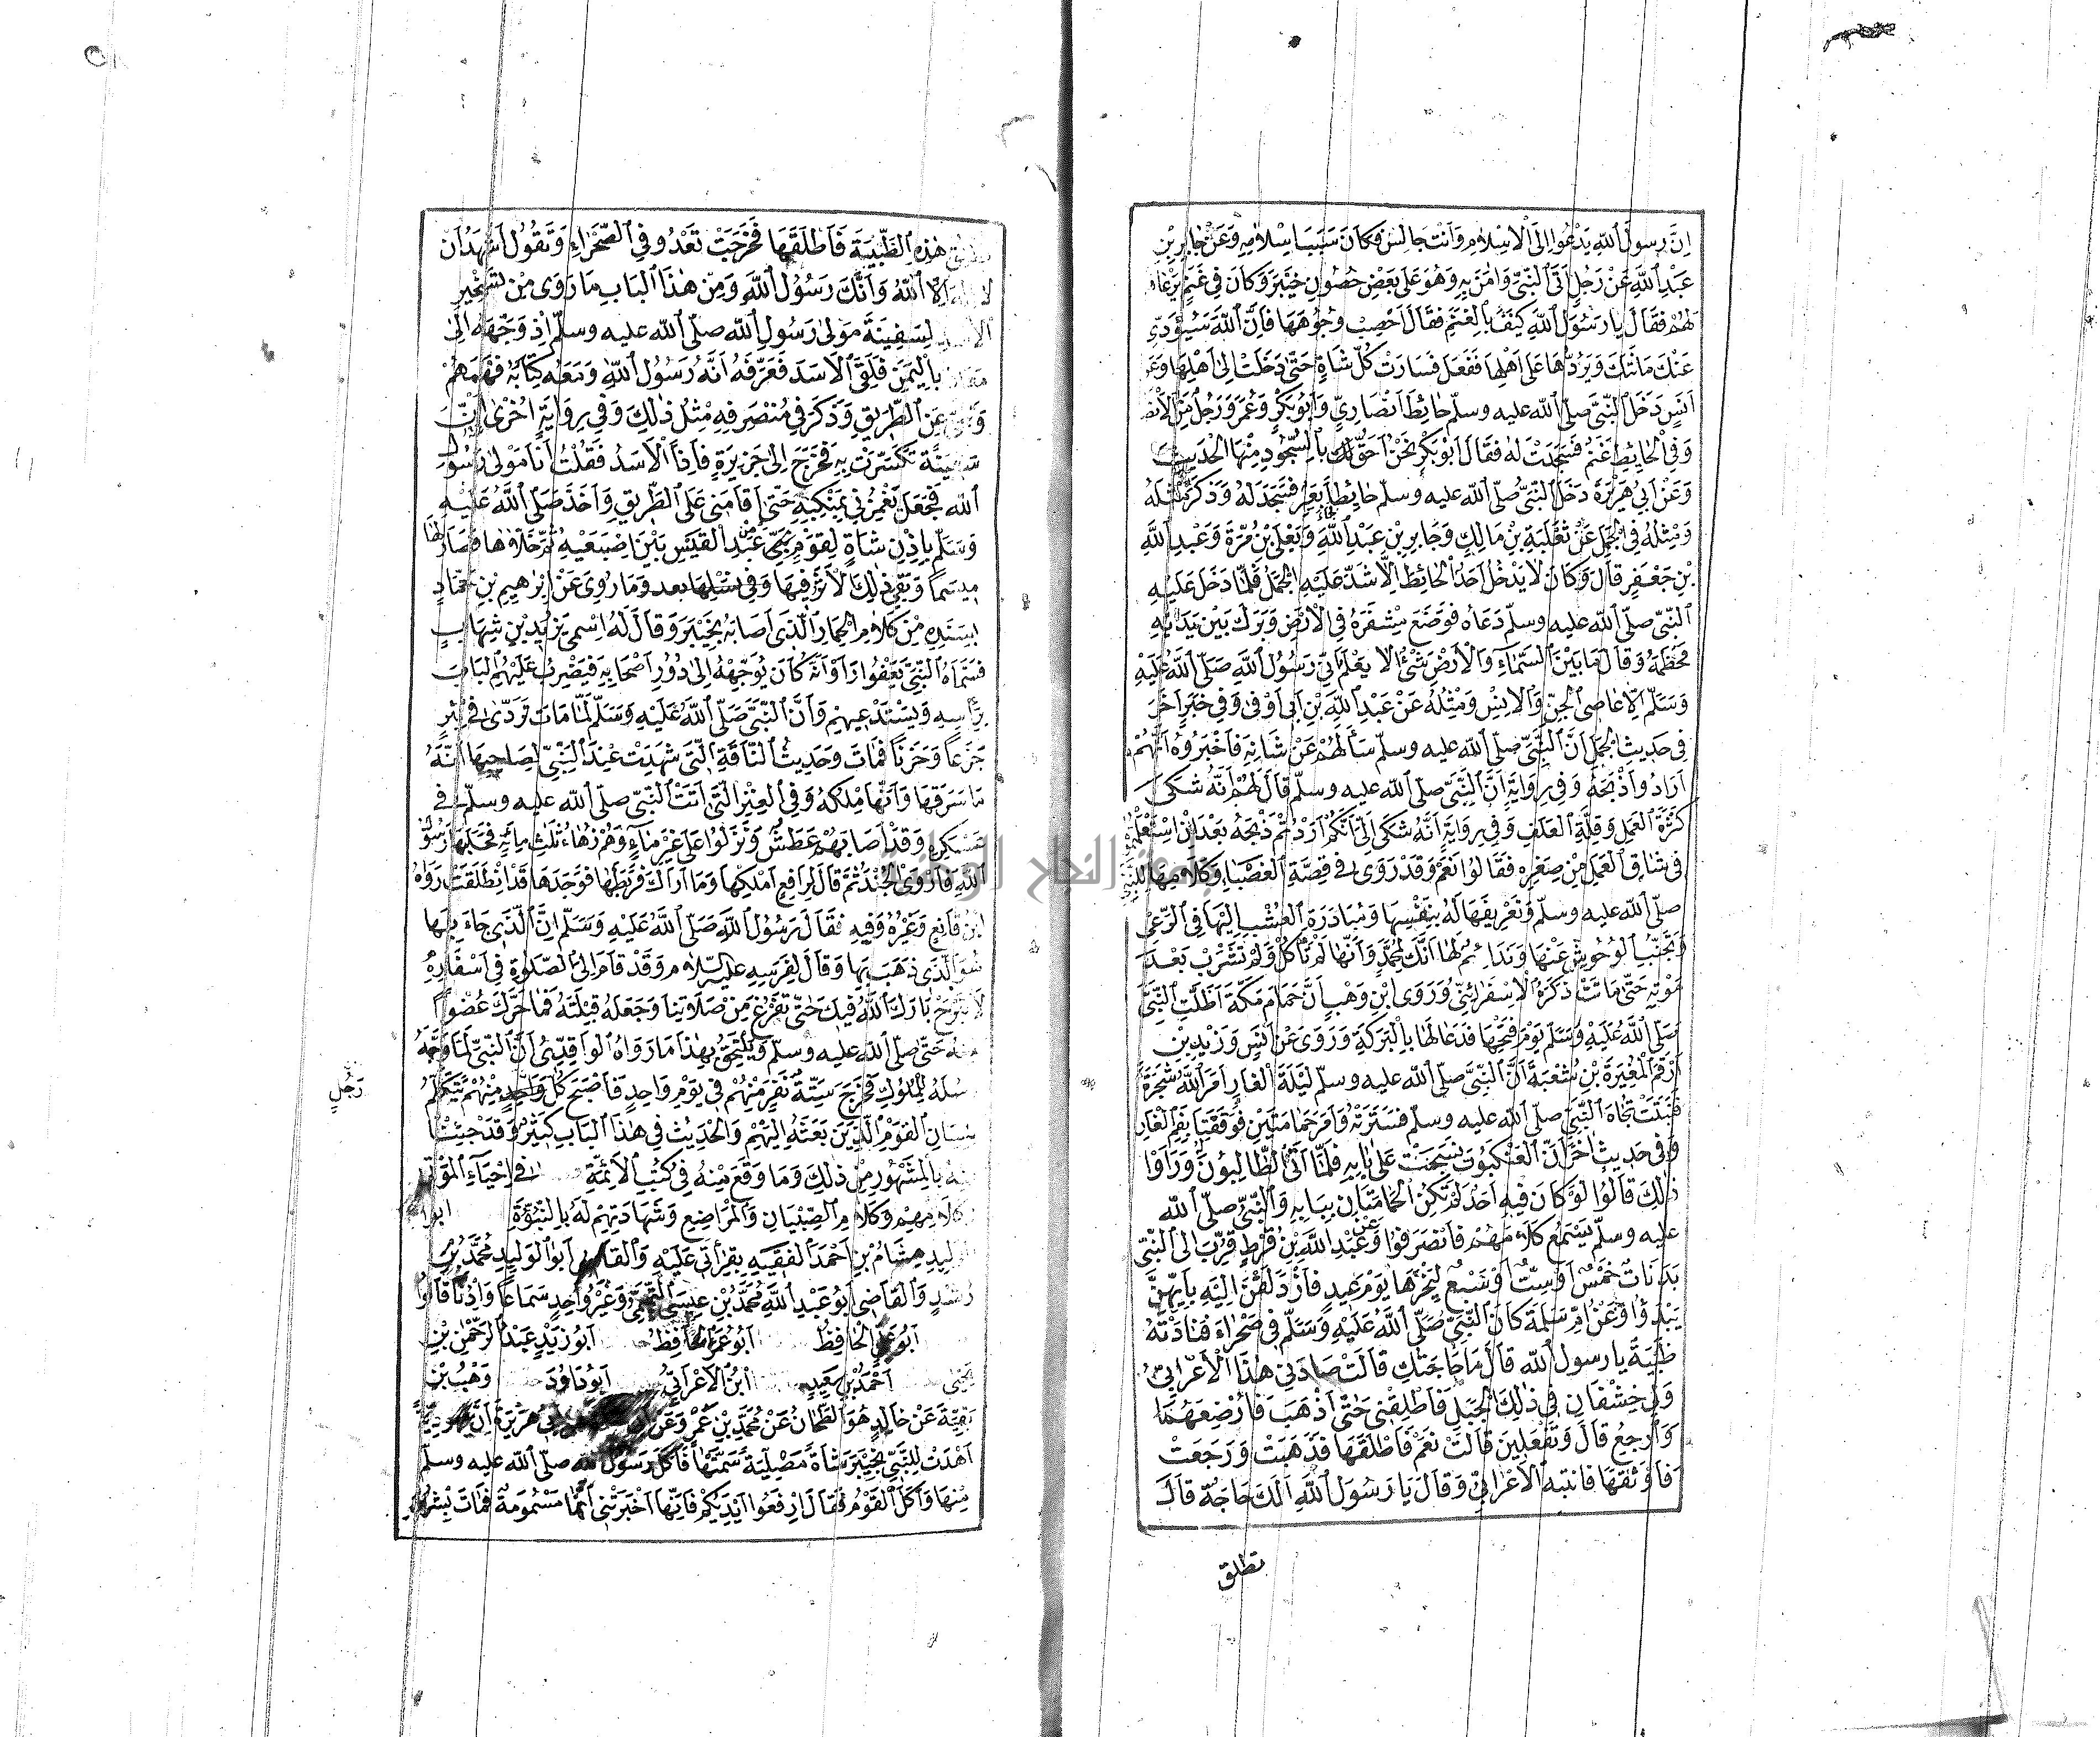 اِنَّ رسولَ اللّٰهِ يَدْعُوا اِلَى الْاِسْلَامِ وَاَنْتَ جَالِسٌ فَكَانَ سَبَبَ اِسْلَامِهِ وَعَنْ جَابِرِ بْنِ
عَبْدِ اللّٰهِ عَنْ رَجُلٍ اَتَى النَّبِيَّ وَاٰمَنَ بِهِ وَهُوَ عَلَى بَعْضِ حُصُونِ خَيْبَرَ وَكَانَ فِي غَنَمٍ يَرْعَاهَا
لَهُمْ فَقَالَ يَا رَسُولَ اللّٰهِ كَيْفَ بِالْغَنَمِ فَقَالَ احْصِبْ وُجُوهَهَا فَاِنَّ اللّٰهَ سَيُؤَدِّي
عَنْكَ اَمَانَتَكَ وَيَرُدُّهَا عَلَى اَهْلِهَا فَفَعَلَ فَسَارَتْ كُلُّ شَاةٍ حَتَّى دَخَلَتْ اِلَى اَهْلِهَا وَعَنْ
اَنَسٍ دَخَلَ النَّبِيُّ صلّى اللّٰه عليه وسلّم حَائِطَ اَنْصَارِيٍّ وَاَبُو بَكْرٍ وَعُمَرُ وَرَجُلٌ مِنَ الْاَنْصَ
وَفِي الْحَائِطِ غَنَمٌ فَسَجَدَتْ لَهُ فَقَالَ اَبُو بَكْرٍ نَحْنُ اَحَقُّ لَكَ بِالسُّجُودِ مِنْهَا الْحَدِيثَ
وَعَنْ اَبِي هُرَيْرَةَ دَخَلَ النَّبِيُّ صلّى اللّٰه عليه وسلّم حَائِطًا فَجَاءَ بَعِيرٌ فَسَجَدَ لَهُ وَذَكَرَ مِثْلَهُ
وَمِثْلُهُ فِي الْجَمَلِ عَنْ ثَعْلَبَةَ بْنِ مَالِكٍ وَجَابِرِ بْنِ عَبْدِ اللّٰهِ وَيَعْلَى بْنِ مُرَّةَ وَعَبْدِ اللّٰهِ
بْنِ جَعْفَرٍ قَالَ وَكَانَ لَا يَدْخُلُ اَحَدٌ الْحَائِطَ اِلَّا شَدَّ عَلَيْهِ الْجَمَلُ فَلَمَّا دَخَلَ عَلَيْهِ
النَّبِيُّ صلّى اللّٰه عليه وسلّم دَعَاهُ فَوَضَعَ مِشْفَرَهُ فِي الْاَرْضِ وَبَرَكَ بَيْنَ يَدَيْهِ
فَخَطَمَهُ وَقَالَ مَا بَيْنَ السَّمَاءِ وَالْاَرْضِ شَيْءٌ اِلَّا يَعْلَمُ اَنِّي رَسُولُ اللّٰهِ صَلَّى اللّٰهُ عَلَيْهِ
وَسَلَّمَ اِلَّا عَاصِي الْجِنِّ وَالْاِنْسِ وَمِثْلُهُ عَنْ عَبْدِ اللّٰهِ بْنِ اَبِي اَوْفَى وَفِي خَبَرٍ اٰخَرَ
فِي حَدِيثِ الْجَمَلِ اَنَّ النَّبِيَّ صلّى اللّٰه عليه وسلّم سَاَلَهُمْ عَنْ شَانِهِ فَاَخْبَرُوهُ اَنَّهُمْ
اَرَادُوا ذَبْحَهُ وَفِي رِوَايَةٍ اَنَّ النَّبِيَّ صلّى اللّٰه عليه وسلّم قَالَ لَهُمْ اِنَّهُ شَكَى
كَثْرَةَ الْعَمَلِ وَقِلَّةَ الْعَلَفِ وَفِي رِوَايَةٍ اَنَّهُ شَكَى اِلَيَّ اَنَّكُمْ اَرَدْتُمْ ذَبْحَهُ بَعْدَ اَنِ اسْتَعْمَلْتُمُوهُ
فِي شَاقِّ الْعَمَلِ مِنْ صِغَرِهِ فَقَالُوا نَعَمْ وَقَدْ رَوَى فِي قِصَّةِ الْعَضْبَاءِ وَكَلَامِهَا لِلنَّبِيِّ
صلّى اللّٰه عليه وسلّم وَتَعْرِيفِهَا لَهُ بِنَفْسِهَا وَمُبَادَرَةِ الْعُشْبِ اِلَيْهَا فِي الرَّعْيِ
وَتَجَنُّبِ الْوُحُوشِ عَنْهَا وَنِدَائِهِمْ لَهَا اِنَّكِ لِمُحَمَّدٍ وَاَنَّهَا لَمْ تَأْكُلْ وَلَمْ تَشْرَبْ بَعْدَ
مَوْتِهِ حَتَّى مَاتَتْ ذَكَرَهُ الْاِسْفَرَائِنِيُّ وَرَوَى ابْنُ وَهْبٍ اَنَّ حَمَامَ مَكَّةَ اَظَلَّتِ النَّبِيَّ
صَلَّى اللّٰهُ عَلَيْهِ وَسَلَّمَ يَوْمَ فَتْحِهَا فَدَعَا لَهَا بِالْبَرَكَةِ وَرَوَى عَنْ اَنَسٍ وَزَيْدِ بْنِ
اَرْقَمَ الْمُغِيرَةِ بْنِ شُعْبَةَ اَنَّ النَّبِيَّ صلّى اللّٰه عليه وسلّم لَيْلَةَ الْغَارِ اَمَرَ اللّٰهُ شَجَرَةً
فَنَبَتَتْ تُجَاهَ النَّبِيِّ صلّى اللّٰه عليه وسلّم فَسَتَرَتْهُ وَاَمَرَ حَمَامَتَيْنِ فَوَقَفَتَا بِفَمِ الْغَارِ
وَفِي حَدِيثٍ اٰخَرَ اَنَّ الْعَنْكَبُوتَ نَسَجَتْ عَلَى بَابِهِ فَلَمَّا اَتَى الطَّالِبُونَ وَرَاَوْا
ذٰلِكَ قَالُوا لَوْ كَانَ فِيهِ اَحَدٌ لَمْ تَكُنِ الْحَمَامَتَانِ بِبَابِهِ وَالنَّبِيُّ صلّى اللّٰه
عليه وسلّم يَسْمَعُ كَلَامَهُمْ فَانْصَرَفُوا وَعَنْ عَبْدِ اللّٰهِ بْنِ قُرْطٍ قُرِّبَ اِلَى النَّبِيِّ
بَدَنَاتٌ خَمْسٌ اَوْ سِتٌّ اَوْ سَبْعٌ لِيَنْحَرَهَا يَوْمَ عِيدٍ فَازْدَلَفْنَ اِلَيْهِ بِاَيِّهِنَّ
يَبْدَؤُا وَعَنْ اُمِّ سَلَمَةَ كَانَ النَّبِيُّ صَلَّى اللّٰهُ عَلَيْهِ وَسَلَّمَ فِي صَحْرَاءَ فَنَادَتْهُ
ظَبْيَةٌ يَا رسول اللّٰه قَالَ مَا حَاجَتُكِ قَالَتْ صَادَنِي هٰذَا الْاَعْرَابِيُّ
وَلِي خِشْفَانِ فِي ذٰلِكَ الْجَبَلِ فَاَطْلِقْنِي حَتَّى اَذْهَبَ فَاُرْضِعَهُمَا
وَاَرْجِعُ قَالَ وَتَفْعَلِينَ قَالَتْ نَعَمْ فَاَطْلَقَهَا فَذَهَبَتْ وَرَجَعَتْ
فَاَوْثَقَهَا فانتبه الْاَعْرَابِيُّ وَقَالَ يَا رَسُولَ اللّٰهِ اَلَكَ حَاجَةٌ قَالَ
تطلق
هٰذِهِ الظَّبْيَةَ فَاَطْلَقَهَا فَخَرَجَتْ تَعْدُو فِي الصَّحْرَاءِ وَتَقُولُ اَشْهَدُ اَنْ
لَا اِلٰهَ اِلَّا اللّٰهُ وَاَنَّكَ رَسُولُ اللّٰهِ وَمِنْ هٰذَا الْبَابِ مَا رَوَى مِنْ تَسْخِيرِ
الْاَسَدِ لِسَفِينَةَ مَوْلَى رَسُولِ اللّٰه صلّى اللّٰه عليه وسلّم اِذْ وَجَّهَهُ اِلَى
مُعَاذٍ بِالْيَمَنِ فَلَقِيَ الْاَسَدَ فَعَرَّفَهُ اَنَّهُ رَسُولُ اللّٰهِ وَمَعَهُ كِتَابُهُ فَهَمْهَمَ
وَتَنَحَّى عَنِ الطَّرِيقِ وَذَكَرَ فِي مُنْصَرَفِهِ مِثْلَ ذٰلِكَ وَفِي رِوَايَةٍ اُخْرَى اَنَّ
سَفِينَةً تَكَسَّرَتْ بِهِ فَخَرَجَ اِلَى جَزِيرَةٍ فَاِذَا الْاَسَدُ فَقُلْتُ اَنَا مَوْلَى رَسُولِ
اللّٰه فَجَعَلَ يَغْمِزُنِي بِمَنْكِبِهِ حَتَّى اَقَامَنِي عَلَى الطَّرِيقِ وَاَخَذَ صَلَّى اللّٰهُ عَلَيْهِ
وَسَلَّمَ بِاُذُنِ شَاةٍ لِقَوْمٍ مِنْ عَبْدِ الْقَيْسِ بَيْنَ اِصْبَعَيْهِ ثُمَّ خَلَّاهَا فَصَارَ لَهَا
مِيسَمًا وَبَقِيَ ذٰلِكَ الْاَثَرُ فِيهَا وَفِي نَسْلِهَا بعد وَمَا رُوِيَ عَنْ اِبْرٰهِيمَ بْنِ حَمَّادٍ
بِسَنَدِهِ مِنْ كَلَامِ الْحِمَارِ الَّذِي اَصَابَهُ بِخَيْبَرَ وَقَالَ لَهُ اسْمِي يَزِيدُ بْنُ شِهَابٍ
فَسَمَّاهُ النَّبِيُّ يَعْفُورًا وَاَنَّهُ كَانَ يُوَجِّهُهُ اِلَى دُورِ اَصْحَابِهِ فَيَضْرِبُ عَلَيْهِمُ الْبَابَ
بِرَأْسِهِ وَيَسْتَدْعِيهِمْ وَاَنَّ النَّبِيَّ صَلَّى اللّٰهُ عَلَيْهِ وَسَلَّمَ لَمَّا مَاتَ تَرَدَّى فِي بِئْرٍ
جَزَعًا وَحُزْنًا فَمَاتَ وَحَدِيثُ النَّاقَةِ الَّتِي شَهِدَتْ عِنْدَ النَّبِيِّ لِصَاحِبِهَا اَنَّهُ
مَا سَرَقَهَا وَاَنَّهَا مِلْكُهُ وَفِي الْعَنْزِ الَّتِي اَتَتِ النَّبِيَّ صلّى اللّٰه عليه وسلّم فِي
عَسْكَرِهِ وَقَدْ اَصَابَهُمْ عَطَشٌ وَنَزَلُوا عَلَى غَيْرِ مَاءٍ وَهُمْ زُهَاءُ ثَلٰثِ مِائَةٍ فَحَلَبَهَا رَسُولُ
اللّٰهِ فَاَرْوَى الْجُنْدَ ثُمَّ قَالَ لِرَافِعٍ اَمْلِكْهَا وَمَا اُرَاكَ فَرَبَطَهَا فَوَجَدَهَا قَدِ انْطَلَقَتْ رَوَاهُ
ابْنُ قَانِعٍ وَغَيْرُهُ وَفِيهِ فَقَالَ رَسُولُ اللّٰهِ صَلَّى اللّٰهُ عَلَيْهِ وَسَلَّمَ اِنَّ الَّذِي جَاءَ بِهَا
هُوَ الَّذِي ذَهَبَ بِهَا وَقَالَ لِفَرَسِهِ عليه السّلام وَقَدْ قَامَ اِلَى الصَّلٰوةِ فِي اَسْفَارِهِ
لَا تَبْرَحْ بَارَكَ اللّٰهُ فِيكَ حَتَّى نَفْرُغَ مِنْ صَلَاتِنَا وَجَعَلَهُ قِبْلَتَهُ فَمَا حَرَّكَ عُضْوًا
مِنْهُ حَتَّى صلّى اللّٰه عليه وسلّم وَيَلْتَحِقُ بِهٰذَا مَا رَوَاهُ الْوَاقِدِيُّ اَنَّ النَّبِيَّ لَمَّا وَجَّهَ
رُسُلَهُ لِلْمُلُوكِ فَخَرَجَ سِتَّةُ نَفَرٍ مِنْهُمْ فِي يَوْمٍ وَاحِدٍ فَاَصْبَحَ كُلُّ وَاحِدٍ مِنْهُمْ يَتَكَلَّمُ
رَجُلٍ
بِلِسَانِ الْقَوْمِ الَّذِينَ بَعَثَهُ اِلَيْهِمْ وَالْحَدِيثُ فِي هٰذَا الْبَابِ كَثِيرٌ وَقَدْ جِئْنَا
مِنْهُ بِالْمَشْهُورِ مِنْ ذٰلِكَ وَمَا وَقَعَ مِنْهُ فِي كُتُبِ الْاَئِمَّةِ فِي اِحْيَاءِ الْمَوْتَى
وَكَلَامِهِمْ وَكَلَامِ الصِّبْيَانِ وَالْمَرَاضِعِ وَشَهَادَتِهِمْ لَهُ بِالنُّبُوَّةِ ابو
الْوَلِيدِ هِشَامُ بْنُ اَحْمَدَ الْفَقِيهِ بِقِرَاءَتِي عَلَيْهِ وَالْقَاضِي اَبُو الْوَلِيدِ مُحَمَّدُ بْنُ
رُشْدٍ وَالْقَاضِي اَبُو عَبْدِ اللّٰهِ مُحَمَّدُ بْنُ عِيسَى التَّمِيمِيُّ وَغَيْرُ وَاحِدٍ سَمَاعًا وَاِذْنًا قَالُوا
اَبُو عَلِيٍّ الْحَافِظُ اَبُو عُمَرَ الْحَافِظُ اَبُو زَيْدٍ عَبْدُ الرَّحْمٰنِ بْنُ
يَحْيَى اَحْمَدُ بْنُ سَعِيدٍ ابْنُ الْاَعْرَابِيِّ اَبُو دَاوُدَ وَهْبُ بْنُ
بَقِيَّةَ عَنْ خَالِدٍ هُوَ الطَّحَّانُ عَنْ مُحَمَّدِ بْنِ عَمْرٍو عَنْ اَبِي هُرَيْرَةَ اَنَّ يَهُودِيَّةً
اَهْدَتْ لِلنَّبِيِّ بِخَيْبَرَ شَاةً مَصْلِيَّةً سَمَّتْهَا فَاَكَلَ رَسُولُ اللّٰه صلّى اللّٰه عليه وسلّم
مِنْهَا وَاَكَلَ الْقَوْمُ فَقَالَ اِرْفَعُوا اَيْدِيَكُمْ فَاِنَّهَا اَخْبَرَتْنِي اَنَّهَا مَسْمُومَةٌ فَمَاتَ بِشْرُ بْنُ